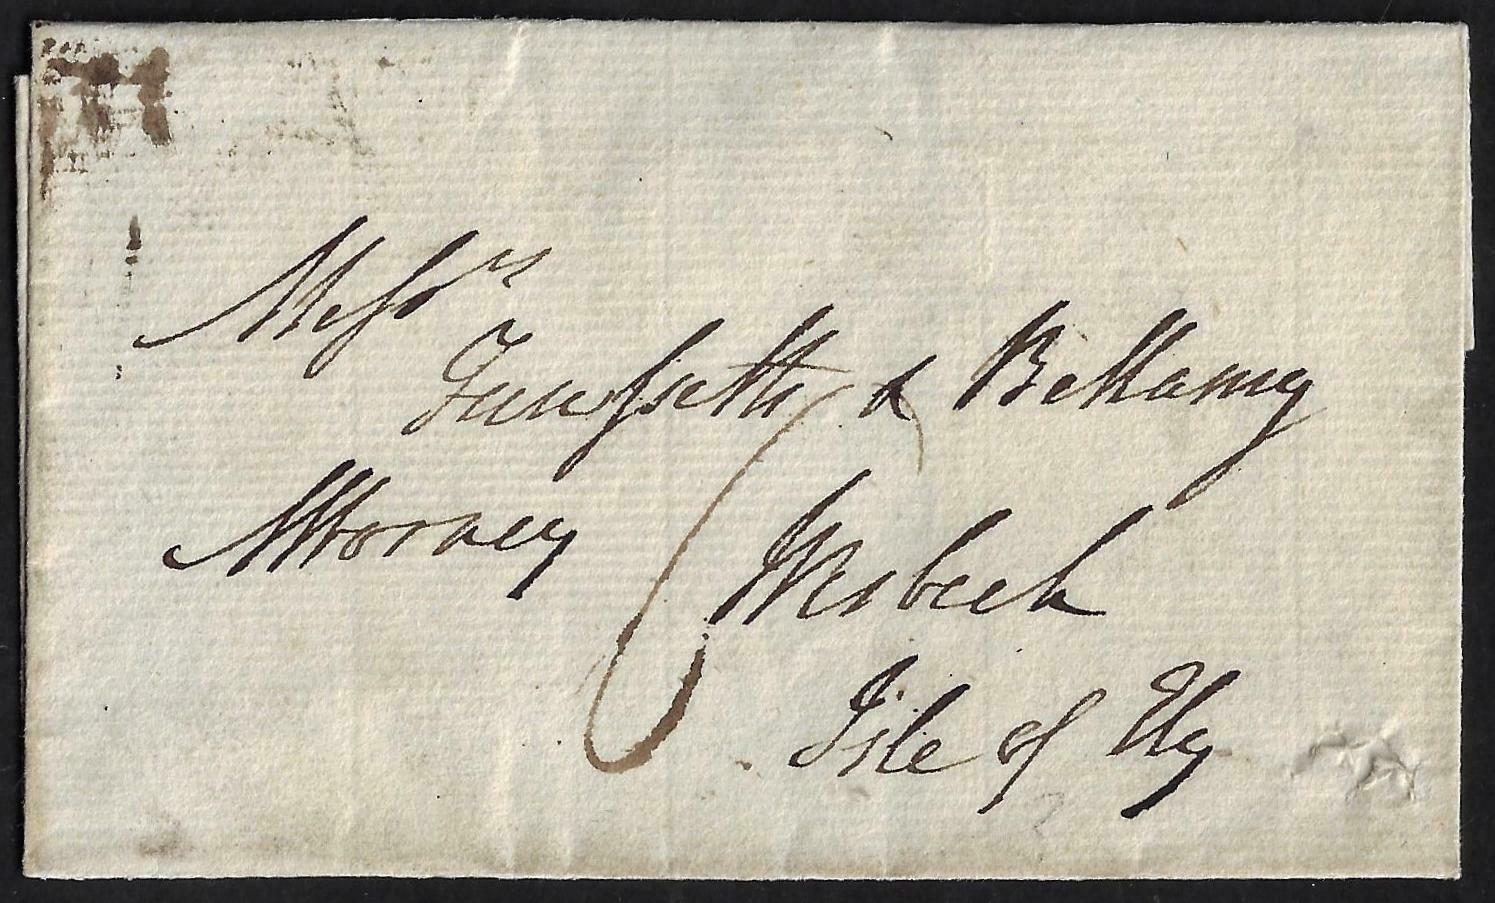 Messrs
& Bellamy
Attorney
Wisbech
Isle of Ely
6